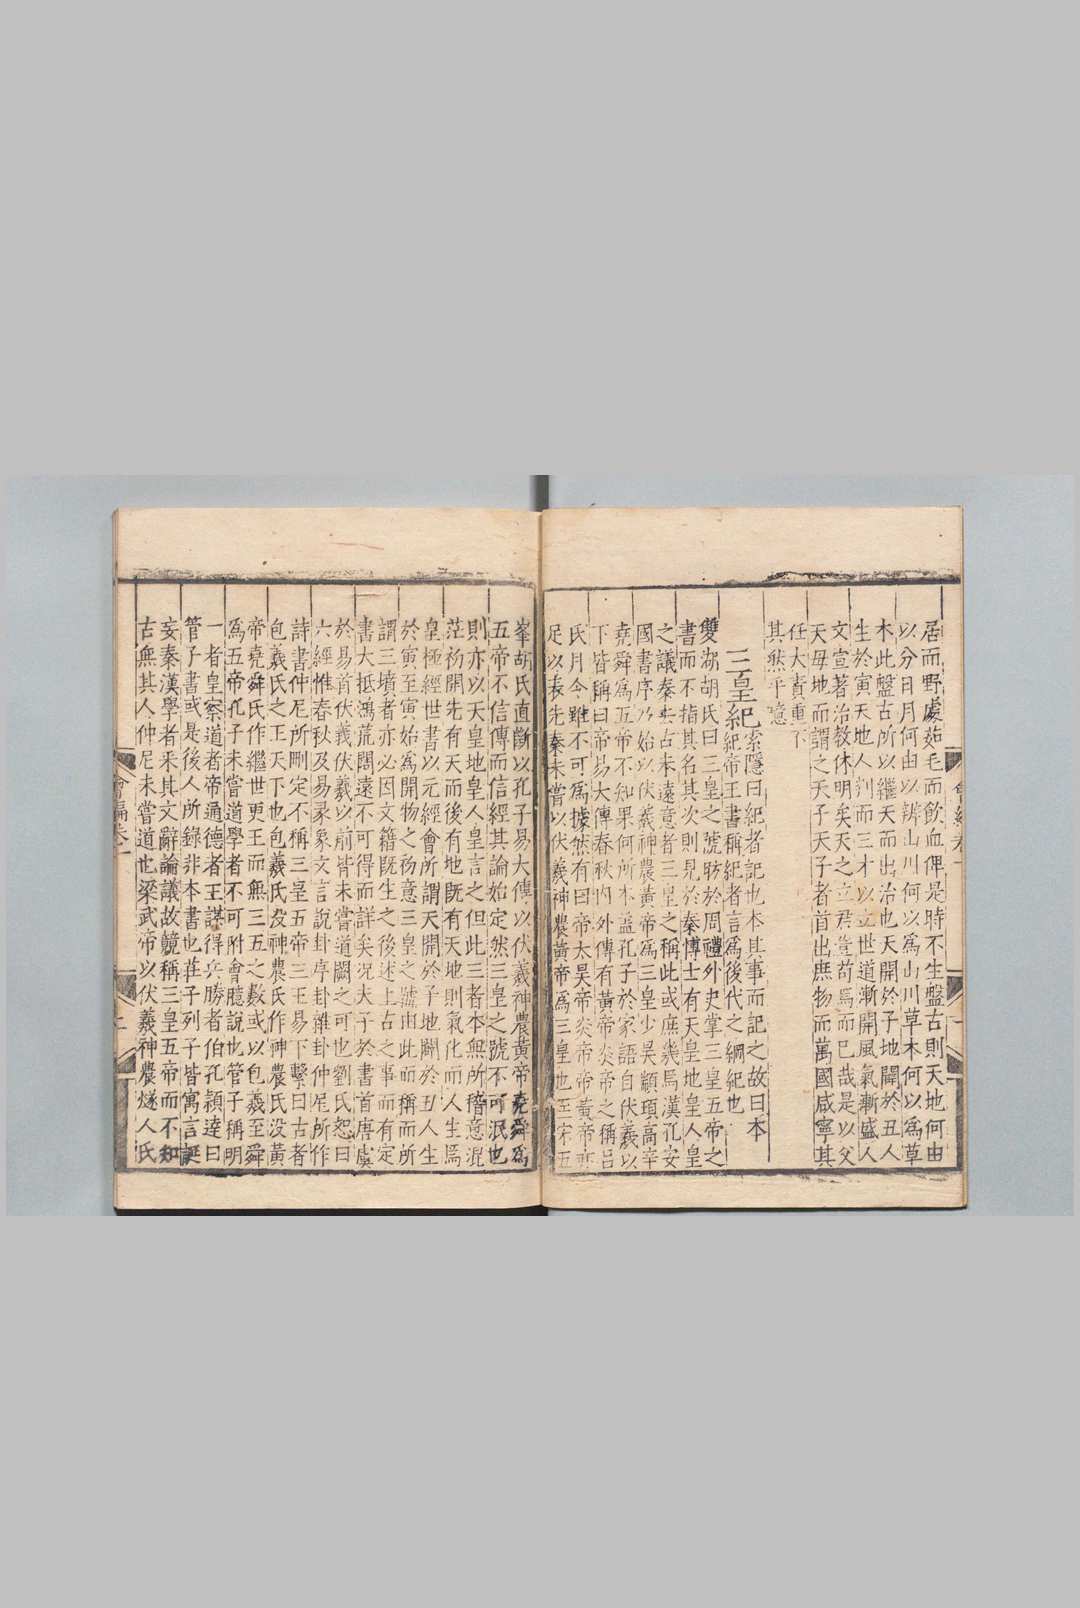 居而野處茹毛而飲血俾是時不生盤古則天地何由
以分日月何由以辨山川何以爲山川草木何以爲草
木此盤古所以繼天而出治也天開於子地闢於丑人
生於寅天地人判而三才以立世道漸開風氣漸盛人
文宣著治教休明矣天之立君豈苟焉而已哉是以父
天母地而謂之天子天子者首出庶物而萬國咸寧其
任大責重不
其然乎噫
三皇紀
索隱曰紀者記也本其事而記之故曰本
紀帝王書稱紀者言爲後代之綱紀也
雙湖胡氏曰三皇之號昉於周禮外史掌三皇五帝之
書而不指其名其次則見於秦博士有天皇地皇人皇
之議秦去古未遠意者三皇之稱此或庶幾焉漢孔安
國書序乃始以伏羲神農黃帝爲三皇少昊顓頊高辛
堯舜爲五帝不知果何所本蓋孔子於家語自伏羲以
下皆稱曰帝易大傳春秋內外傳有黃帝炎帝之稱呂
氏月令雖不可爲據然有曰帝太昊帝炎帝帝黃帝亦
足以表先秦未嘗以伏羲神農黃帝爲三皇也至宋五
峯胡氏直斷以孔子易大傳以伏羲神農黃帝堯舜爲
五帝不信傳而信經其論始定然三皇之號不可泯也
則亦以天皇地皇人皇言之但此三者本無所稽意混
茫初開先有天而後有地旣有天地則氣化而人生焉
皇極經世書以元經會所謂天開於子地闢於丑人生
於寅至寅始爲開物之初意三皇之號由此而稱而所
謂三墳者亦必因文籍旣生之後述上古之事而有定
書大抵鴻荒闊遠不可得而詳矣況夫子於書首唐虞
於易首伏羲伏羲以前皆未嘗道闕之可也劉氏恕曰
六經惟春秋及易彖象文言說卦序卦雜卦仲尼所作
詩書仲尼所刪定不稱三皇五帝三王易下繫曰古者
包羲氏之王天下也包羲氏沒神農氏作神農氏沒黃
帝堯舜氏作繼世更王而無三五之數或以包羲至舜
爲五帝孔子未嘗道學者不可附會臆說也管子稱明
一者皇察道者帝通德者王謀得兵勝者伯孔穎逹曰
管子書或是後人所錄非本書也莊子列子皆寓言誕
妄秦漢學者采其文辭論議故競稱三皇五帝而不知
古無其人仲尼未嘗道也梁武帝以伏羲神農燧人氏